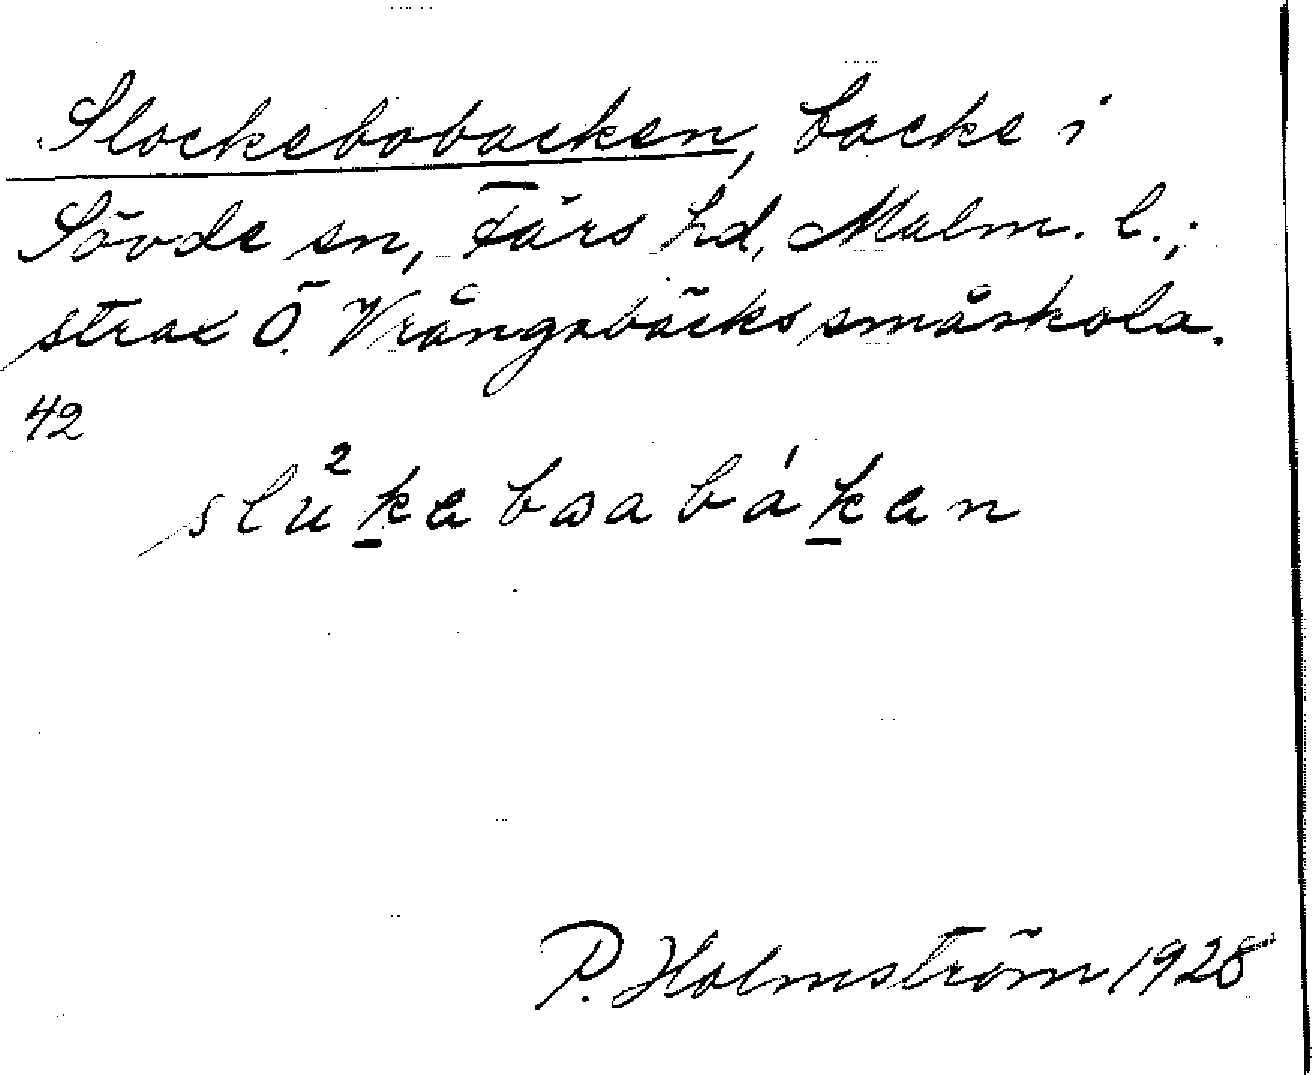 Slockebobacken, backe i
Sövde sn, Färs hd, Malm. l.;
strax Ö. Vrångabäcks småskola.
42
slu²kebɷabákan
P. Holmström 1928